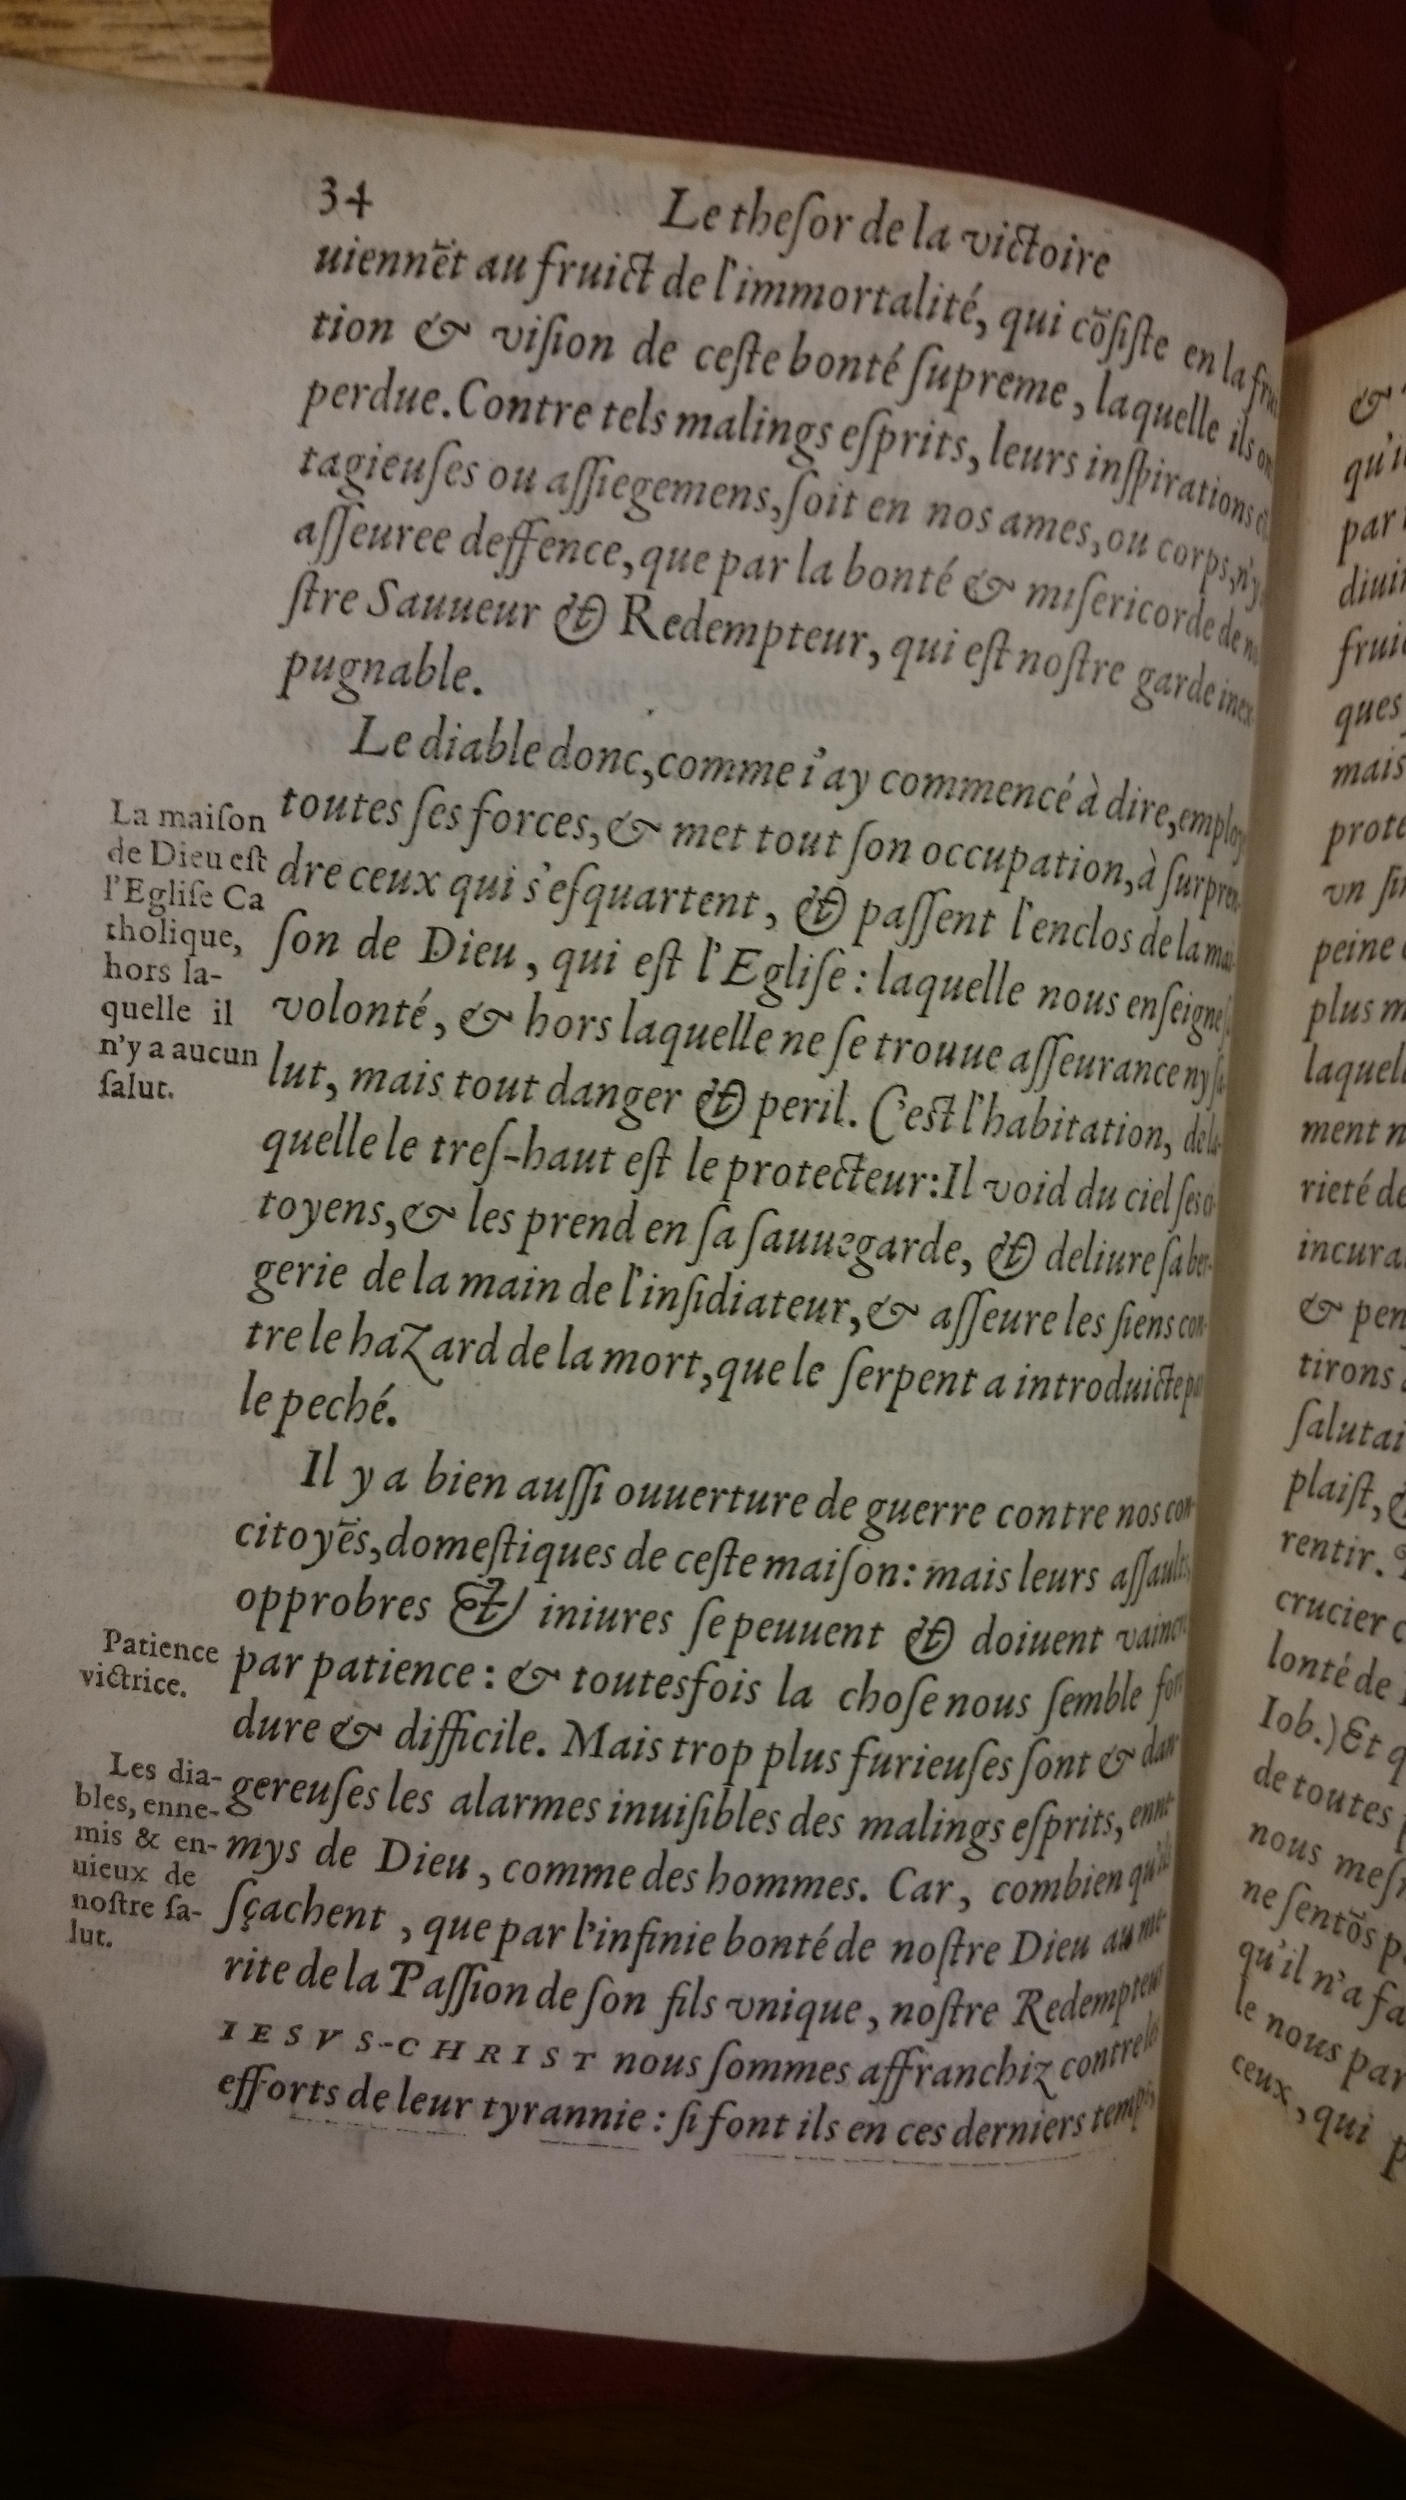 34
Le theſor de la victoire
uiennẽt au fruict de l'immortalité, qui cõſiſte en la
tion & viſion de ceſte bonté ſupreme, laquelle ils
perdue. Contre tels malings eſprits, leurs inſpirations
tagieuſes ou aſſiegemens, ſoit en nos ames, ou corps, n'y
aſſeuree deffence, que par la bonté & miſericorde de
ſtre Sauueur & Redempteur, qui eſt noſtre garde inex
pugnable.
Le diable donc, comme i'ay commencé à dire,
toutes ſes forces, & met tout ſon occupation, à ſurpren-
dre ceux qui s'eſquartent, & paſſent l'enclos de la mai-
ſon de Dieu, qui eſt l'Egliſe : laquelle nous enſeigne
volonté, & hors laquelle ne ſe trouue aſſeurance ny
lut, mais tout danger & peril. C'eſt l'habitation, de la-
quelle le treſ-haut eſt le protecteur: Il void du ciel ſes ci-
toyens, & les prend en ſa ſauuegarde, & deliure ſa ber-
gerie de la main de l'inſidiateur, & aſſeure les ſiens con-
tre le hazard de la mort, que le ſerpent a introduicte
le peché.
La maiſon
de Dieu eſt
l'Egliſe Ca
tholique,
hors la-
quelle il
n'y a aucun
ſalut.
Il y a bien auſſi ouuerture de guerre contre nos con-
citoyẽs, domeſtiques de ceſte maiſon: mais leurs aſſaults,
opprobres & iniures ſe peuuent & doiuent vaincre
par patience : & toutesfois la choſe nous ſemble fort
dure & difficile. Mais trop plus furieuſes ſont & dan-
gereuſes les alarmes inuiſibles des malings eſprits, enne-
mys de Dieu, comme des hommes. Car, combien qu'ils
ſçachent, que par l'infinie bonté de noſtre Dieu au me-
rite de la Paſſion de ſon fils vnique, noſtre Redempteur
IESVS-CHRIST nous ſommes affranchiz contre les
efforts de leur tyrannie : ſi font ils en ces derniers temps,
Patience
victrice.
Les dia-
bles, enne-
mis & en-
uieux de
noſtre ſa-
lut.
&
par
mais
vn
peine
plus
ment n
rieté de
& pen
tirons
plaiſt,
rentir.
crucier
lonté de
Iob.) Et q
de toutes
nous
ne ſentõs
qu'il n'a
le nous par
ceux, qui